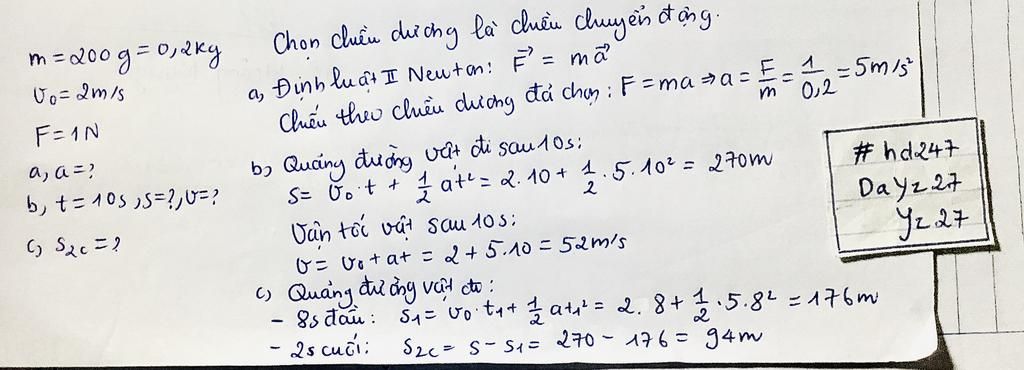 m = 200g = 0,2kg
v₀ = 2m/s
F = 1N
a, a = ?
b, t = 10s, s = ?, v = ?
c) s₂c = ?
Chọn chiều dương là chiều chuyển động.
a, Định luật II Newton: F⃗ = ma⃗
Chiếu theo chiều dương đã chọn: F = ma ⇒ a = F/m = 1/0,2 = 5m/s²
b) Quãng đường vật đi sau 10s:
s = v₀.t + 1/2 at² = 2.10 + 1/2 . 5.10² = 270m
Vận tốc vật sau 10s:
v = v₀ + at = 2 + 5.10 = 52m/s
c) Quãng đường vật đi:
- 8s đầu: s₁ = v₀.t₁ + 1/2 at₁² = 2.8 + 1/2 . 5.8² = 176m
- 2s cuối: s₂c = s - s₁ = 270 - 176 = 94m
# hd247
DaYz27
Yz27